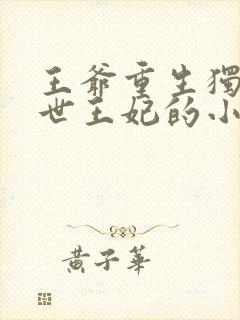 王爺重生獨
世王妃的小
黃子華